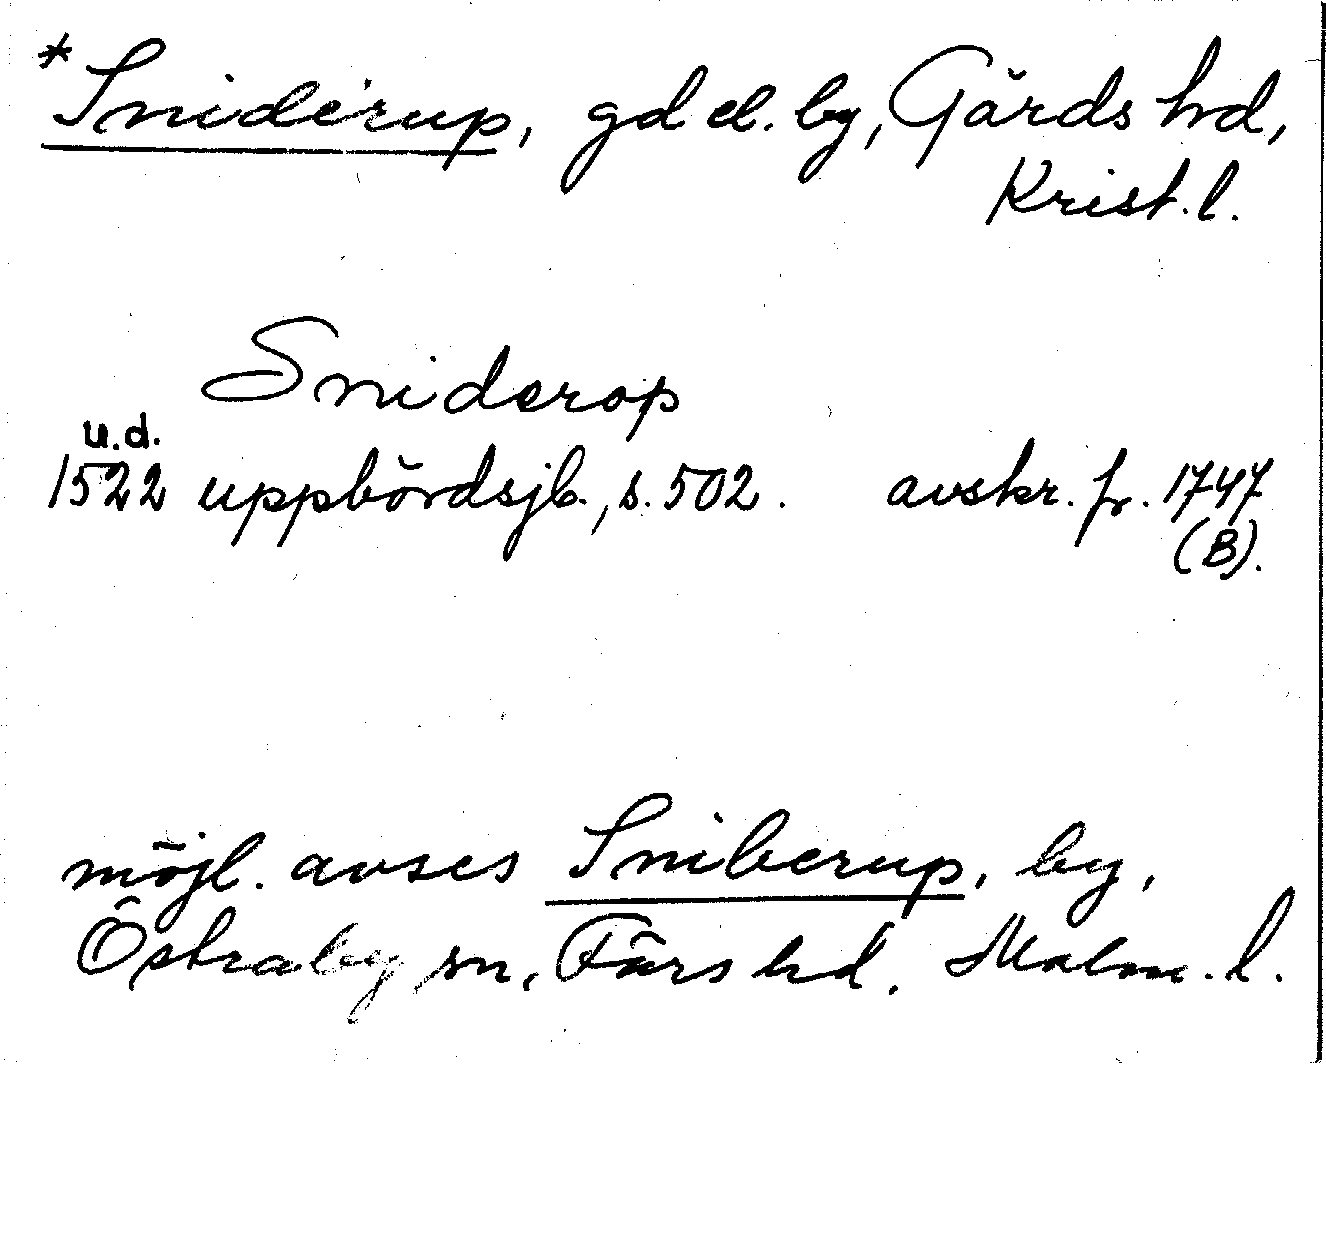 *Sniderup, gd el. by, Gärds hd,
Krist. l.
Sniderop
u.d.
1522 uppbördsjb., s. 502. avskr. fr. 1747
(B).
möjl. avses Sniberup, by,
Östraby sn, Färs hd. Malm. l.